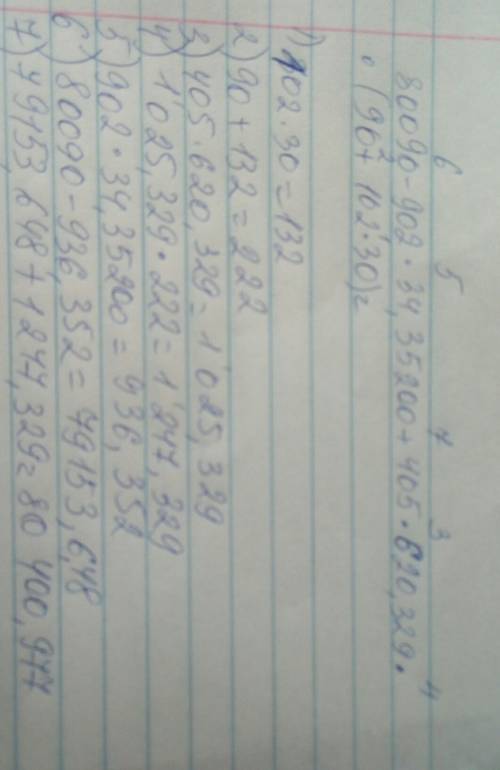 6 5 7 3 4
80090-902·34,35200+405·620,329·
2 1
·(90+102·30)=
1) 102·30=132
2) 90+132=222
3) 405·620,329=1'025,329
4) 1'025,329·222=1'247,329
5) 902·34,35200=936,352
6) 80090-936,352=79153,648
7) 79153,648+1247,329=80 400,977